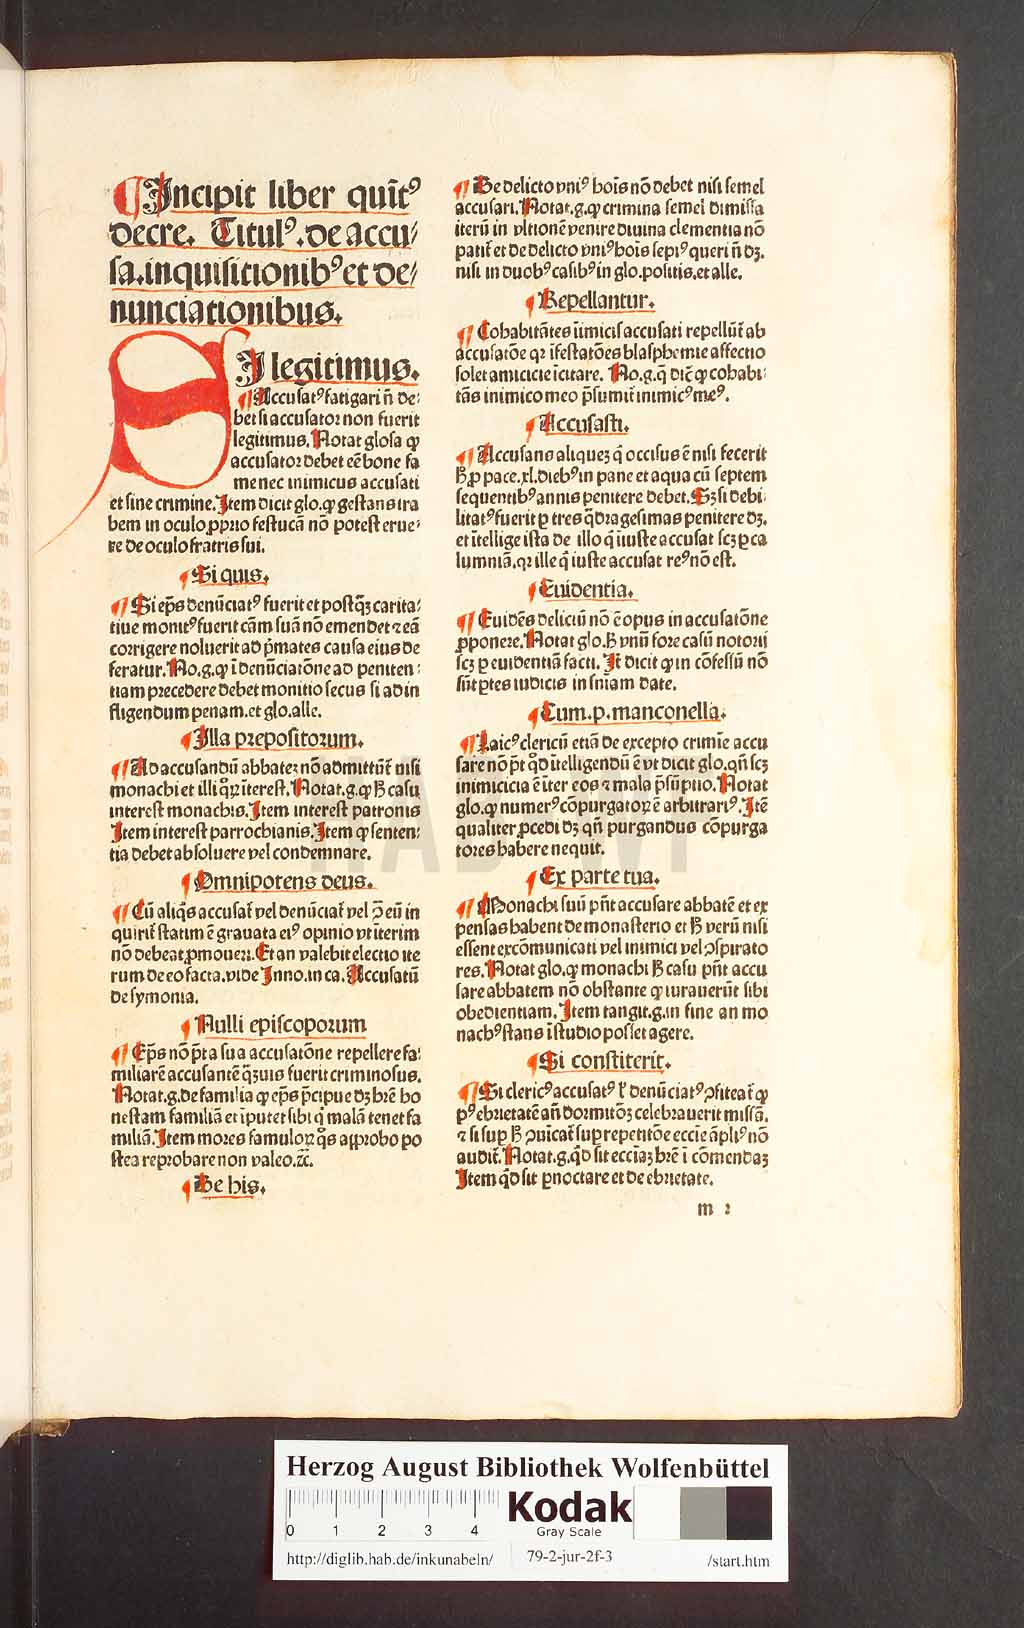 ¶ Incipit liber quīt⁹
decre. Titul⁹. de accu⸗
sa. inquisitionib⁹ et de⸗
nunciationibus.
I legitimus.
¶ Accusat⁹ fatigari n̄ de⸗
bet si accusator non fuerit
legitimus. Notat glosa ꝙ
accusator debet eē bone fa
me nec inimicus accusati
et sine crimine. Item dicit glo. ꝙ gestans tra
bem in oculo ꝓprio festucā nō potest erue⸗
re de oculo fratris sui.
¶ Si quis.
¶ Si ep̄s denūciat⁹ fuerit et postꝙ̄ carita⸗
tiue monit⁹ fuerit cām suā nō emendet ⁊ eā
corrigere noluerit ad p̄mates causa eius de
feratur. No. g. ꝙ ī denūciatōne ad peniten⸗
tiam precedere debet monitio secus si ad in
fligendum penam. et glo. alle.
¶ Illa prepositorum.
¶ Ad accusandū abbatez nō admittūt̄ nisi
monachi et illi quoꝝ īterest. Notat. g. ꝙ ħ casu
interest monachis. Item interest patronis
Item interest parrochianis. Item ꝙ senten⸗
tia debet absoluere vel condemnare.
¶ Omnipotens deus.
¶ Cū aliq̄s accusat̄ vel denūciat̄ vel ↄ̄ eū in
quirit̄ statim ē grauata ei⁹ opinio vt īterim
nō debeat ꝓmoueri. Et an valebit electio ite
rum de eo facta. vide Inno. in ca. Accusatū
de symonia.
¶ Nulli episcoporum
¶ Ep̄s nō p̄t a sua accusatōne repellere fa⸗
miliarē accusantē ꝙ̄uis fuerit criminosus.
Notat. g. de familia ꝙ ep̄s p̄cipue dꝫ bre̅ ho
nestam familiā et īputet sibi q̄ malā tenet fa
miliā. Item mores famuloꝝ q̄s approbo po
stea reprobare non valeo. ⁊c̄.
¶ De his.
¶ De delicto vni⁹ hoīs nō debet nisi semel
accusari. Notat. g. ꝙ crimina semel dimissa
iterū in vltionē venire diuina clementia nō
patit̄ et de delicto vni⁹ hoīs sepi⁹ queri n̄ dꝫ.
nisi in duob⁹ casib⁹ in glo. positis. et alle.
¶ Repellantur.
¶ Cohabitātes īimicis accusati repellūt̄ ab
accusatōe qꝛ īfestatōes blasphemie affectio
solet amicicie īcitare. No. g. q̄ dic̄ ꝙ cohabi⸗
tās inimico meo p̄sumit̄ inimic⁹ me⁹.
¶ Accusasti.
¶ Accusans aliquez q̄ occisus ē nisi fecerit
ħ ꝓ pace. xl. dieb⁹ in pane et aqua cū septem
sequentib⁹ annis penitere debet. Sꝫ si debi⸗
litat⁹ fuerit ꝑ tres q̄dragesimas penitere dꝫ.
et ītellige ista de illo q̄ īiuste accusat scꝫ ꝑ ca
lumniā. qꝛ ille q̄ iuste accusat re⁹ nō est.
¶ Euidentia.
¶ Euidēs delictū nō ē opus in accusatōne
ꝓponere. Notat glo. ħ vnū fore casū notorij
scꝫ ꝑ euidentiā facti. It̄ dicit ꝙ in cōfessū nō
sūt ꝑtes iudicis in sn̄iam date.
¶ Cum. p. manconella.
¶ Laic⁹ clericū etiā de excepto crimīe accu
sare nō p̄t qd̄ ītelligendū ē vt dicit glo. qn̄ scꝫ
inimicicia ē īter eos ⁊ mala p̄sūptio. Notat
glo. ꝙ numer⁹ cōpurgatoꝝ ē arbitrari⁹. Itē
qualiter ꝓcedi dꝫ qn̄ purgandus cōpurga
tores habere nequit.
¶ Ex parte tua.
¶ Monachi suū pn̄t accusare abbatē et ex
pensas habent de monasterio et ħ verū nisi
essent excōmunicati vel inimici vel ↄspirato
res. Notat glo. ꝙ monachi ħ casu pn̄t accu
sare abbatem nō obstante ꝙ iurauerūt sibi
obedientiam. Item tangit. g. in fine an mo
nach⁹ stans ī studio posset agere.
¶ Si constiterit.
¶ Si cleric⁹ accusat⁹ ł denūciat⁹ ↄfiteat̄ ꝙ
p⁹ ebrietatē an̄ dormitōꝫ celebrauerit missā.
⁊ si suꝑ ħ ↄuicat̄ suꝑ repetitōe eccīe āpli⁹ nō
audit̄. Notat. g. qd̄ sit eccīaꝫ bre̅ ī cōmendaꝫ
Item qd̄ sit ꝑnoctare et de ebrietate.
m 2
HAB WF
Herzog August Bibliothek Wolfenbüttel
0 1 2 3 4
Kodak
Gray Scale
http://diglib.hab.de/inkunabeln/ 79-2-jur-2f-3 /start.htm